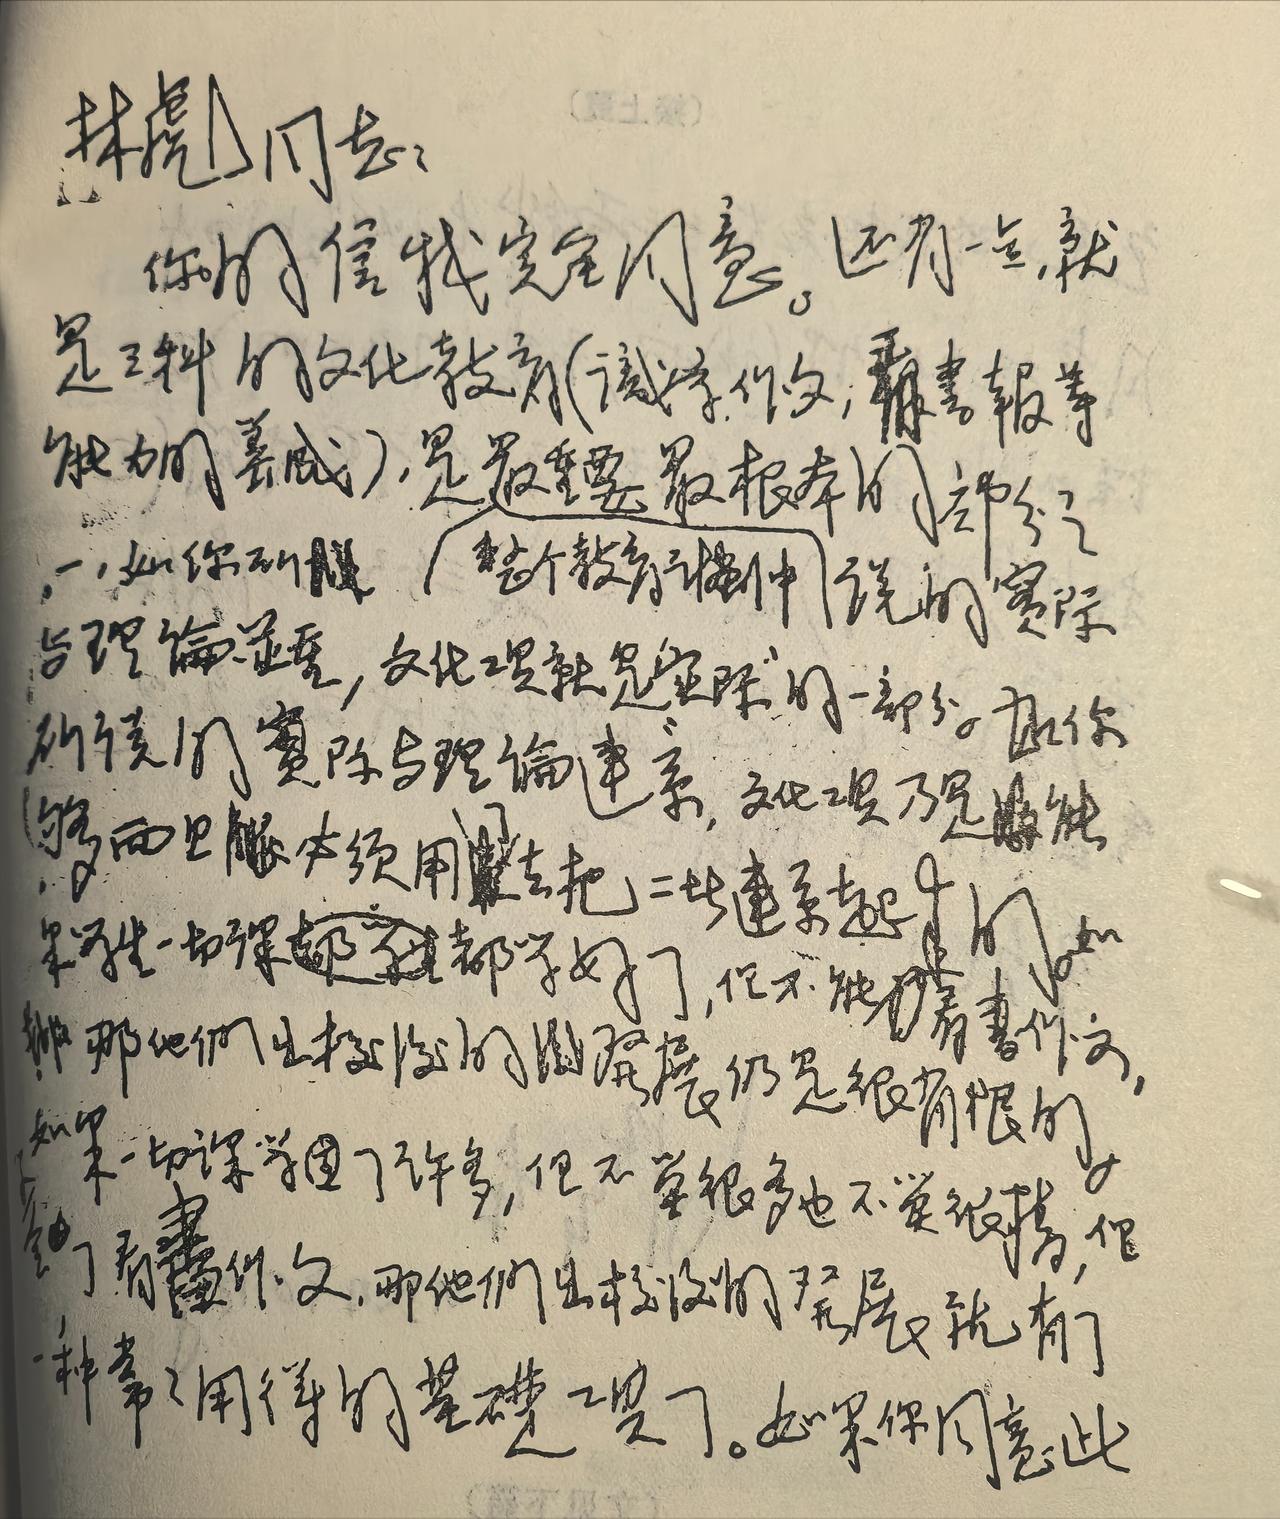 林彪同志：
你的信我完全同意。还有一点，就
是三科的文化教育（识字，作文，看書報等
能力的养成），是最重要最根本的部分之
一，如你所 整个教育计划中 说的實际
与理論並重，文化工具就是“实际”的一部分。如你
所读的實际与理論連系，文化工具乃是能
够而且必须用去把二者連系起来的。如
果学生一切课都学好了，但不能看書作文，
那他們出校後的發展仍是很有限的。
如果一切课学了许多，但不算很多也不算很精，但
学了看書作文，那他們出校後的發展就有了
一种常常用得的基礎工具了。如果你同意此